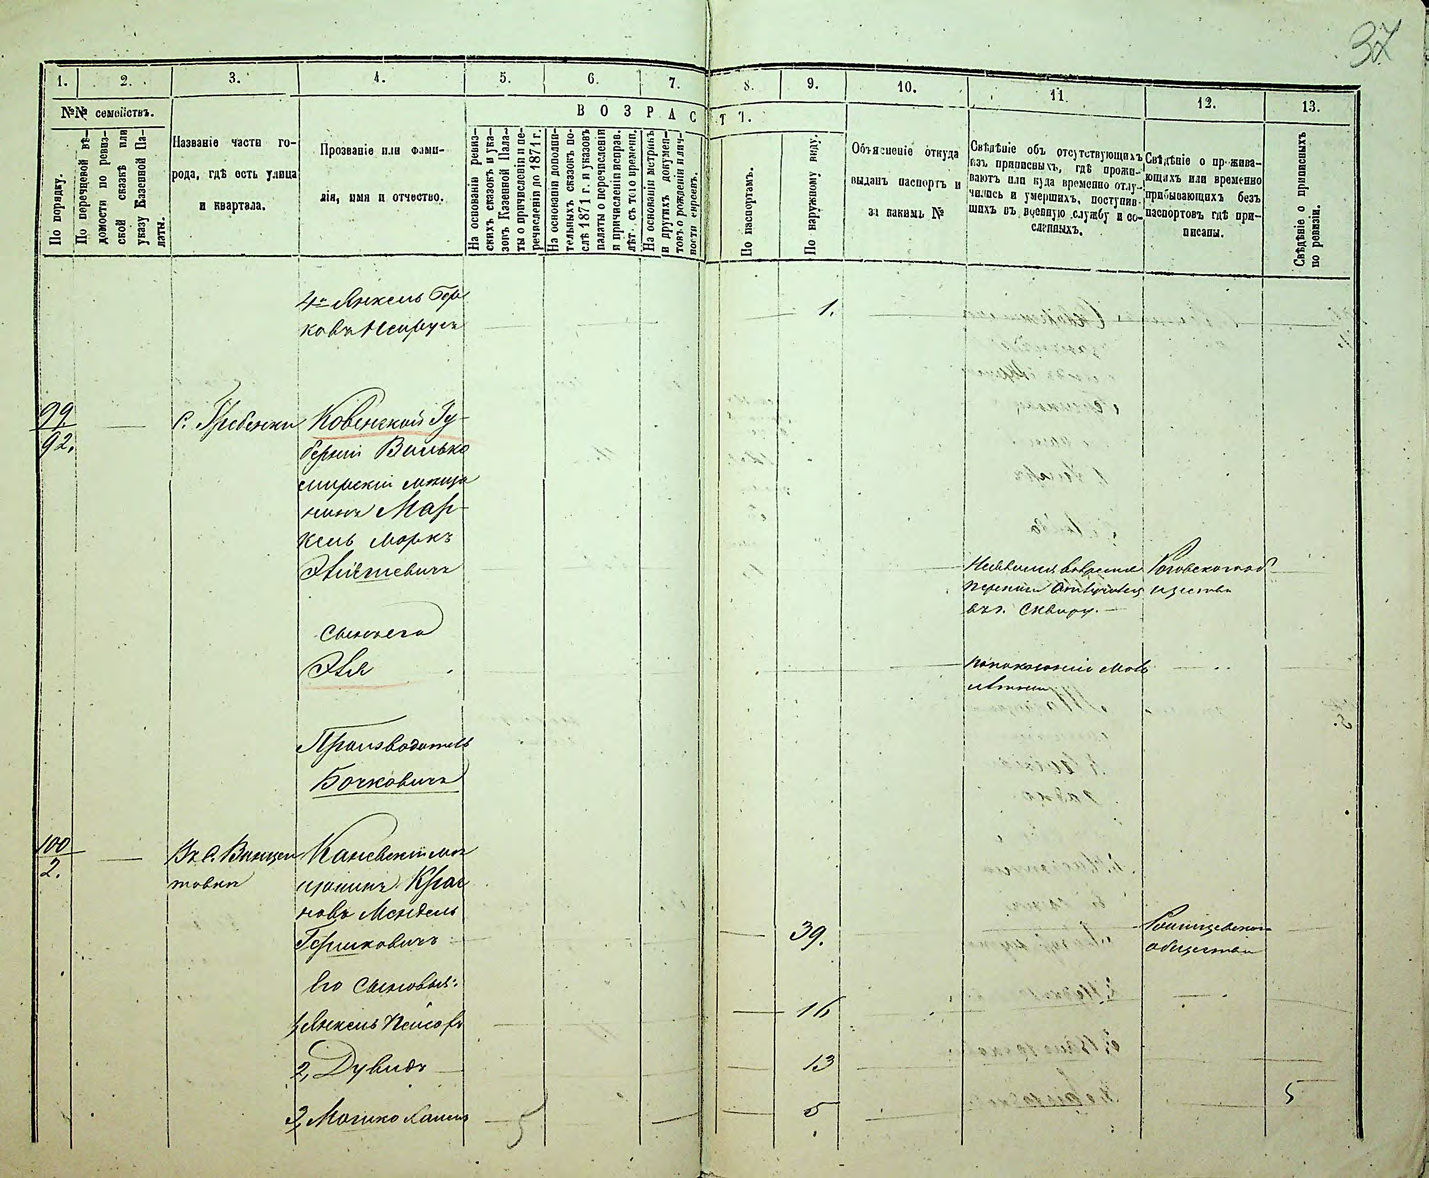 37
1. 2. 3. 4. 5. 6. 7. 8. 9. 10. 11. 12. 13.
№№ семействъ.
По порядку.
По перечневой вѣ-
домости по ревиз-
ской сказкѣ или
указу Казенной Па-
латы.
Названіе части го-
рода, гдѣ есть улица
и квартала.
Прозваніе или фами-
лія, имя и отчество.
ВОЗРАСТЪ.
На основаніи ревиз-
скихъ сказокъ и ука-
зовъ Казенной Пала-
ты о причисленіи и пе-
речисленіи до 1871 г.
На основаніи дополни-
тельныхъ сказокъ по-
слѣ 1871 г. и указовъ
палаты о перечисленіи
и причисленіи исправ.
лѣт. съ того времени.
На основаніи метрикъ
и другихъ докумен-
товъ о рожденіи и лич-
ности евреевъ.
По паспортамъ.
По наружному виду.
Объясненіе откуда
выданъ паспортъ и
за какимъ №
Свѣдѣніе объ отсутствующихъ
изъ приписныхъ, гдѣ прожи-
ваютъ или куда временно отлу-
чились и умершихъ, поступив-
шихъ въ военную службу и со-
сланныхъ.
Свѣдѣніе о прожива-
ющихъ или временно
прибывающихъ безъ
паспортовъ гдѣ при-
писаны.
Свѣдѣніе о приписныхъ
по ревизіи.
4. Янкель Бер
ковъ 1.
99. с. Гребенки Ковенской Гу-
92. берніи Вилько
мирскій мѣща
нинъ Мар-
кель Моркъ
Эвилевичъ
сынъ его
Эвля
въ г. Сквиру.
Производитель
Бочковичъ
100 Въ с. Винцен Каневскій мѣ
2. товки щанинъ Крас
новъ Мендель
Гершковичъ 39. общества
Его сыновья:
1, Янкель 16
2, Дувидъ 13
3, Мошко Хаимъ 5 5 5